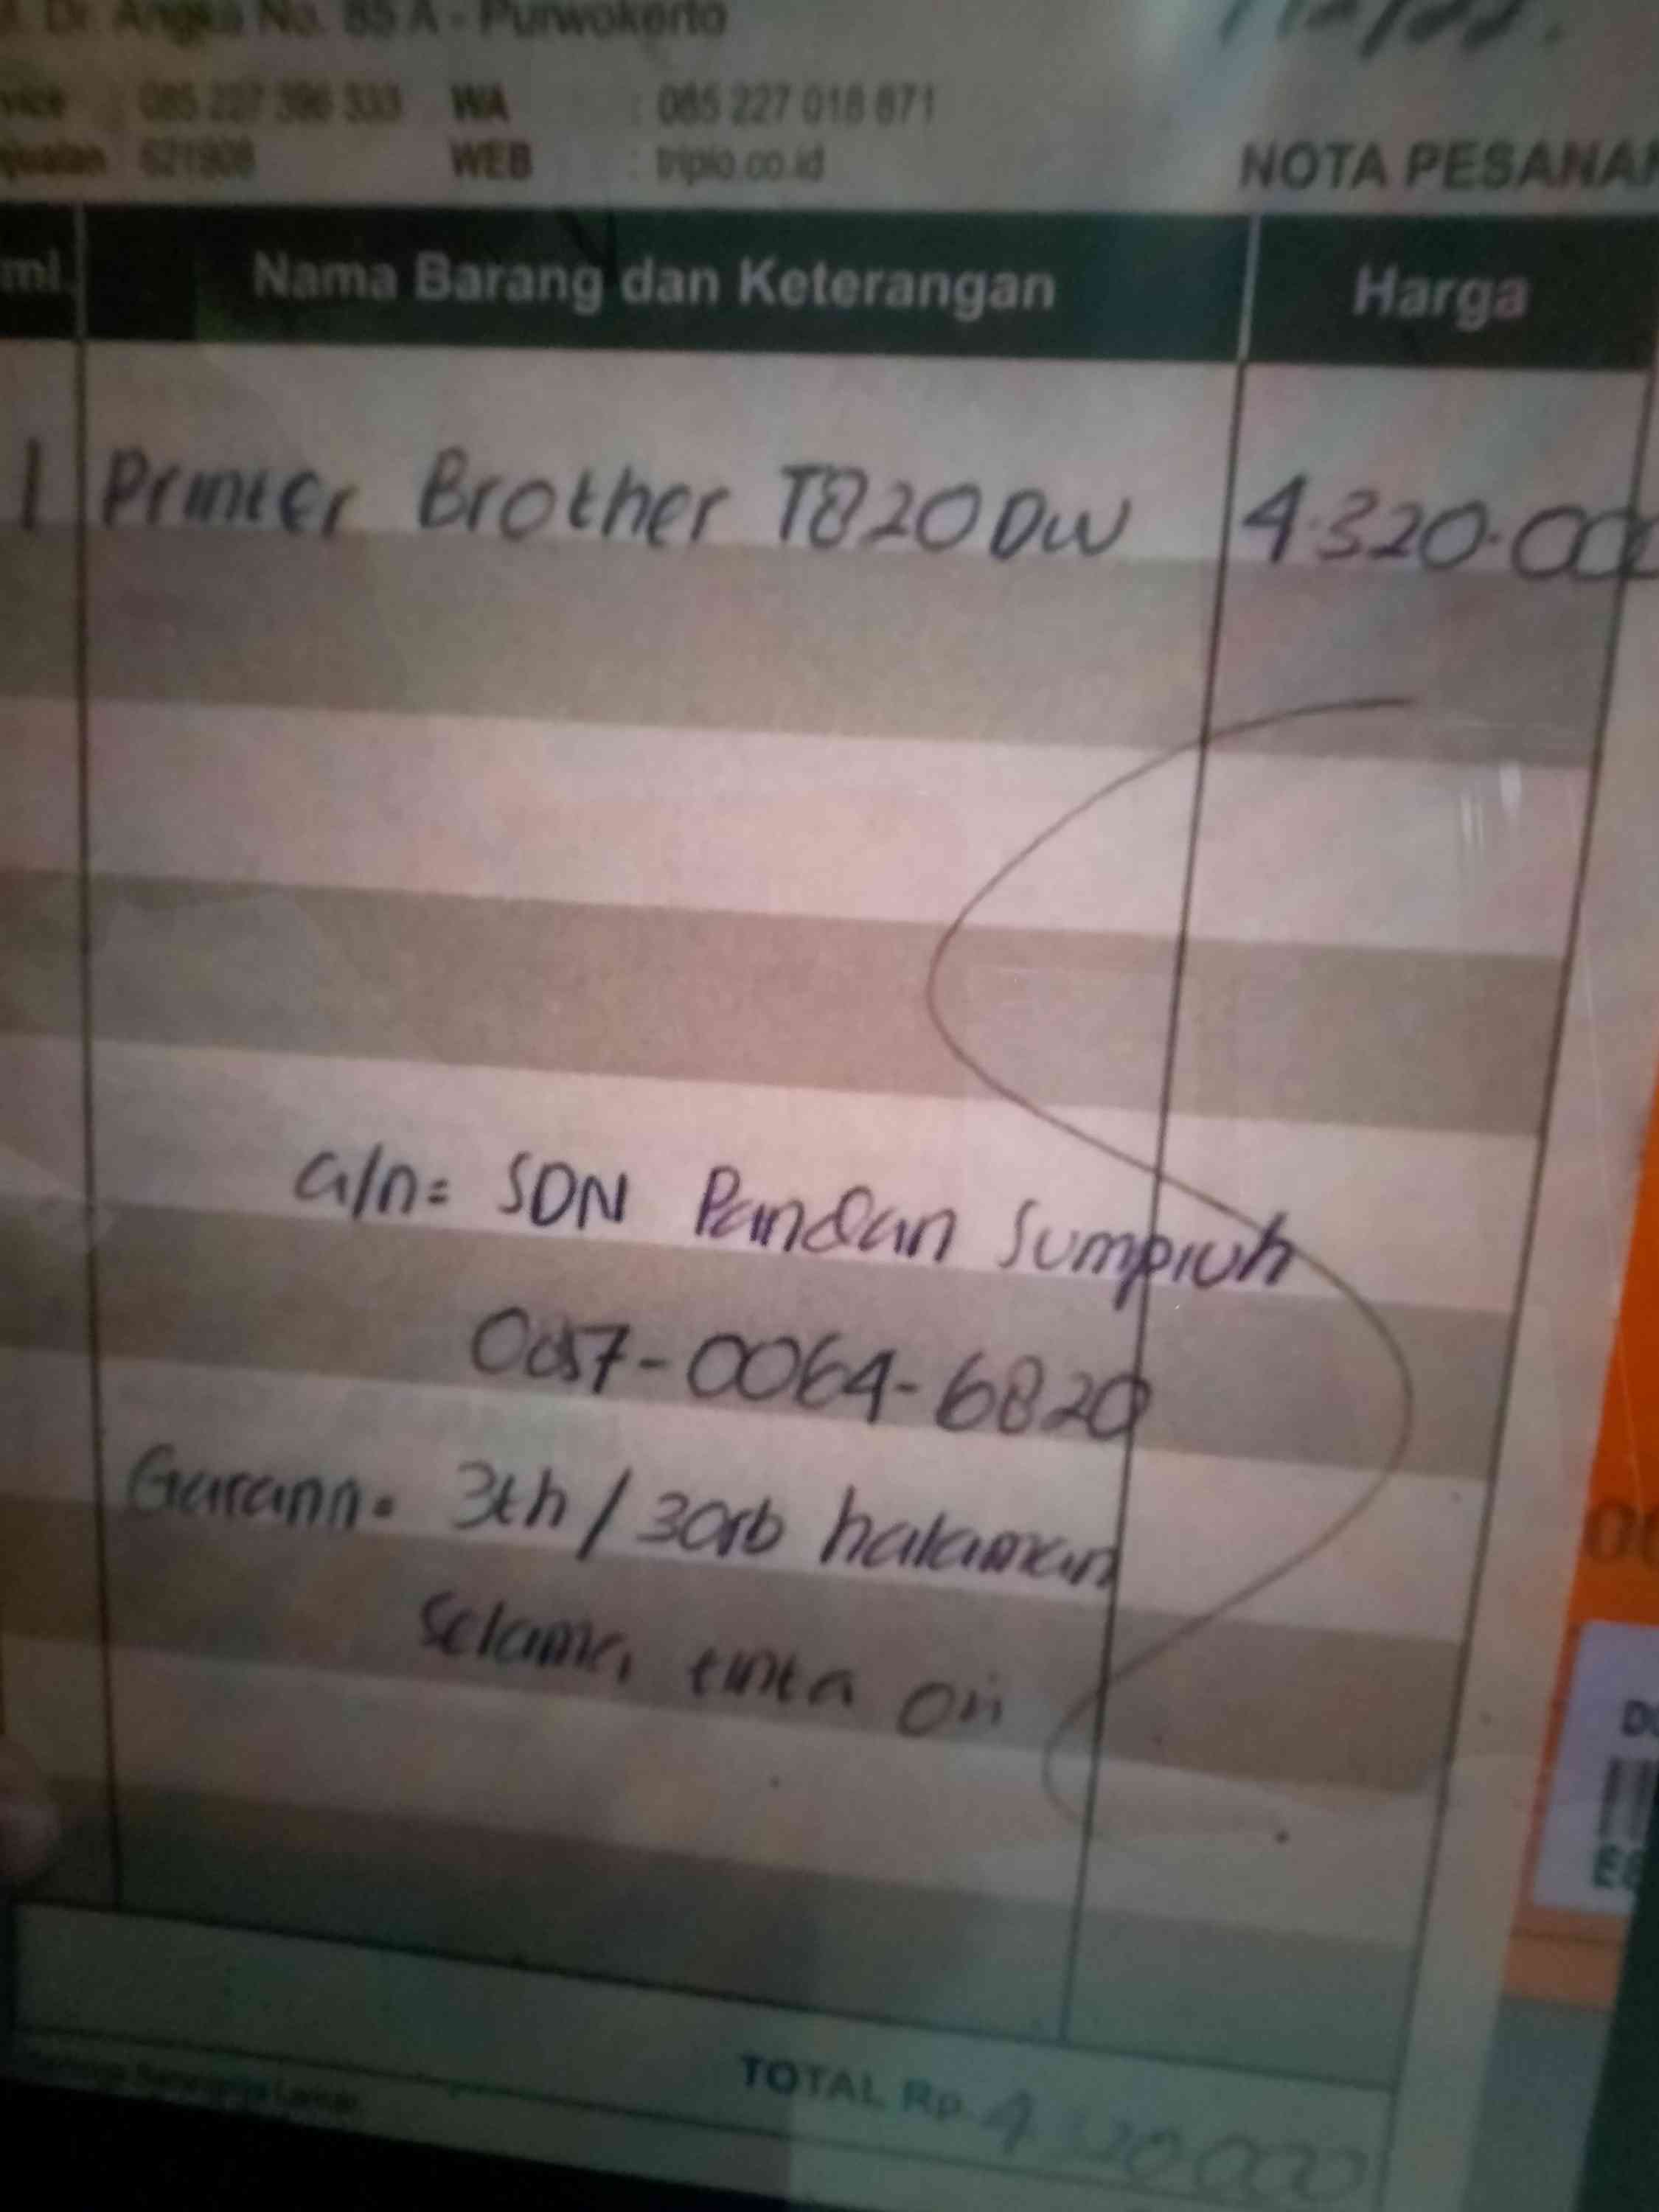 Dr. Angka No. 85 A - Purwokerto
085 227 396 333 WA : 085 227 018 871
621908 WEB : triplo.co.id
NOTA PESANAN
ml. Nama Barang dan Keterangan Harga
1 Printer Brother T820DW 4.320.000
a/n= SDN Pandan Sumpiuh
0857-0064-6820
Garansi= 3th / 30rb halaman
selama tinta ori
TOTAL Rp. 4.320.000